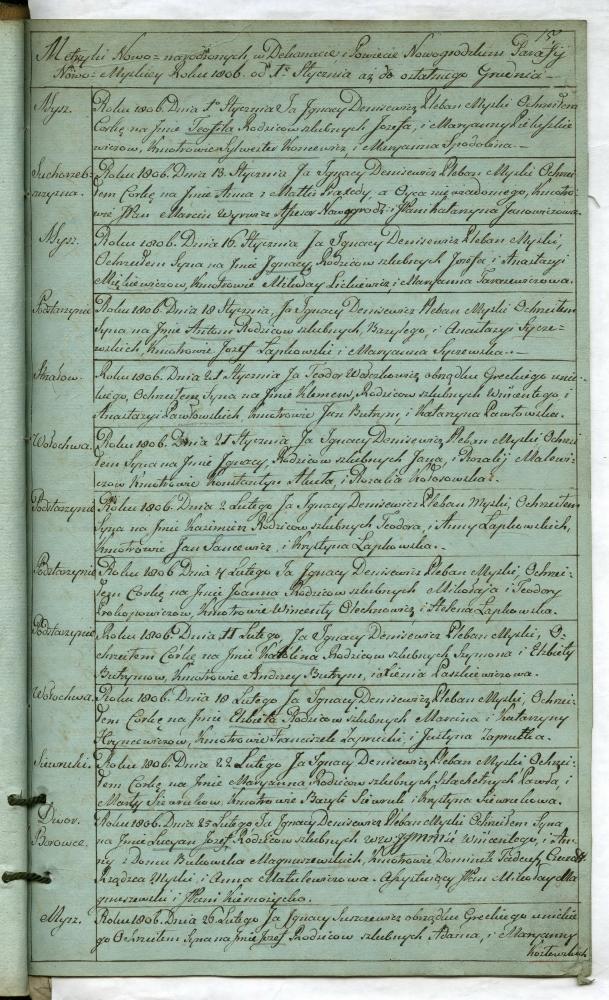 15
Metryki Nowo-narodzonych w Dekanacie i Powiecie Nowogrodzkim Parafij
Nowo-Myskiey Roku 1806. od 1o Stycznia aż do ostatniego Grudnia
Mysz. Roku 1806. Dnia 1o Stycznia Ja Jgnacy Denisewicz Pleban Myski Ochrzciłem
Corkę na Jmie Teofila Rodzicow szlubnych Jozefa, i Maryanny
wiczow, Kmotrowie Sylwester Koncewicz, i Maryanna
Roku 1806. Dnia 13. Stycznia Ja Jgnacy Denisewicz Pleban Myski Ochrzci-
łem Corkę na Jmie Anna z Matki a Oyca niewiadomego, Kmotro-
wie JPan Marcin Nowogrodz: i JPani Katarzyna Janowiczowa.
Mysz. Roku 1806. Dnia 16. Stycznia Ja Jgnacy Denisewicz Pleban Myski,
Ochrzciłem Syna na Jmie Jgnacy, Rodzicow szlubnych Jozefa i Anastazyi
Kmotrowie Mikołay i Maryanna Tarasewiczowa.
Podstarzynie Roku 1806. Dnia 18 Stycznia, Ja Jgnacy Denisewicz Pleban Myski Ochrzciłem
Syna na Jmie Antoni Rodzicow szlubnych, Bazylego, i Anastazyi
Kmotrowie Jozef Lapkowski i Maryanna
Roku 1806. Dnia 21 Stycznia Ja Teodor obrządku Greckiego unic-
kiego, Ochrzciłem Syna na Jmie Klemens, Rodzicow szlubnych Wincentego i
Anastazyi Pawłowskich Kmotrowie Jan Butrym, i Katarzyna Pawłowska.
Wołochwa. Roku 1806. Dnia 21 Stycznia Ja Jgnacy Denisewicz Pleban Myski Ochrzci-
łem Syna na Jmie Jgnacy, Rodzicow szlubnych Jana, i Rozalij
Kmotrowie Konstantyn i Rozalia Kołosowska.
Podstarzynie Roku 1806. Dnia 2 Lutego Ja Jgnacy Denisewicz Pleban Myski, Ochrzciłem
Syna na Jmie Kazimierz Rodzicow szlubnych Teodora, i Anny Lapkowskich,
Kmotrowie Jan i Krystyna Lapkowska.
Podstarzynie Roku 1806 Dnia 4 Lutego Ja Jgnacy Denisewicz Pleban Myski, Ochrzci-
łem Corkę na Jmie Joanna Rodzicow szlubnych Mikołaja i Teodory
Prokopowiczow, Kmotrowie Wincenty Olechnowicz i Helena Lapkowska.
Podstarzynie Roku 1806. Dnia 11 Lutego, Ja Jgnacy Denisewicz Pleban Myski, O-
chrzciłem Corkę na Jmie Karolina Rodzicow szlubnych Szymona i Elzbiety
Butrymow, Kmotrowie Andrzey Butrym,
Wołochwa. Roku 1806. Dnia 18 Lutego Ja Jgnacy Denisewicz Pleban Myski, Ochrzci-
łem Corkę na Jmie Elzbieta Rodzicow szlubnych Marcina i Katarzyny
Hryncewiczow, Kmotrowie Franciszek i Justyna
Siewruki. Roku 1806. Dnia 22 Lutego Ja Jgnacy Denisewicz Pleban Myski Ochrzci-
łem Corkę na Jmie Maryanna Rodzicow szlubnych Szlachetnych Pawła i
Marty Siewrukow, Kmotrowie Bazyli Siewruk i Krystyna Siewrukowa.
Dwor. Roku 1806. Dnia 25 Lutego Ja Jgnacy Denisewicz Pleban Myski Ochrzciłem Syna
Borowce. na Jmie Lucyan Jozef Rodzicow szlubnych Wincentego, i An-
ny z Domu Bukowska Magnuszewskich, Kmotrowie Dominik Tadeusz
Rządzca Myski, i Anna Matulewiczowa. Assystujący JPan Mikołay Ma-
gnuszewski i JPani
Mysz. Roku 1806. Dnia 26 Lutego Ja Jgnacy obrządku Greckiego unickie-
go Ochrzciłem Syna na Jmie Jozef Rodzicow szlubnych Adama, i Maryanny
Kozłowskich